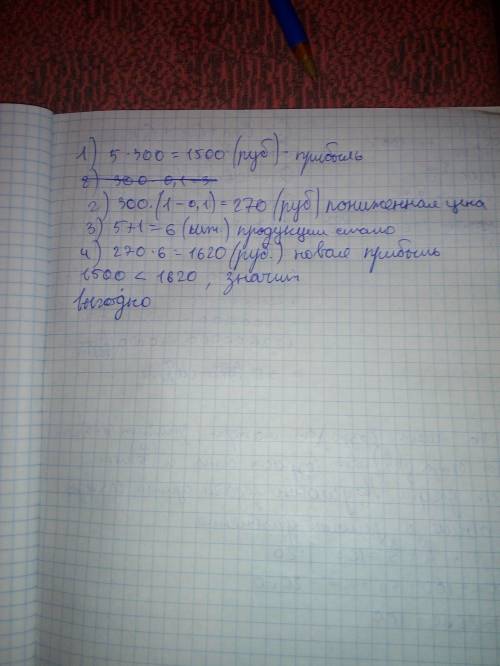 1) 5·300 = 1500 (руб) - прибыль
2) 300·0,1=3
2) 300·(1-0,1) = 270 (руб) пониженная цена
3) 5+1 = 6 (шт.) продукции стало
4) 270·6 = 1620 (руб.) новая прибыль
1500 < 1620, значит
выгодно